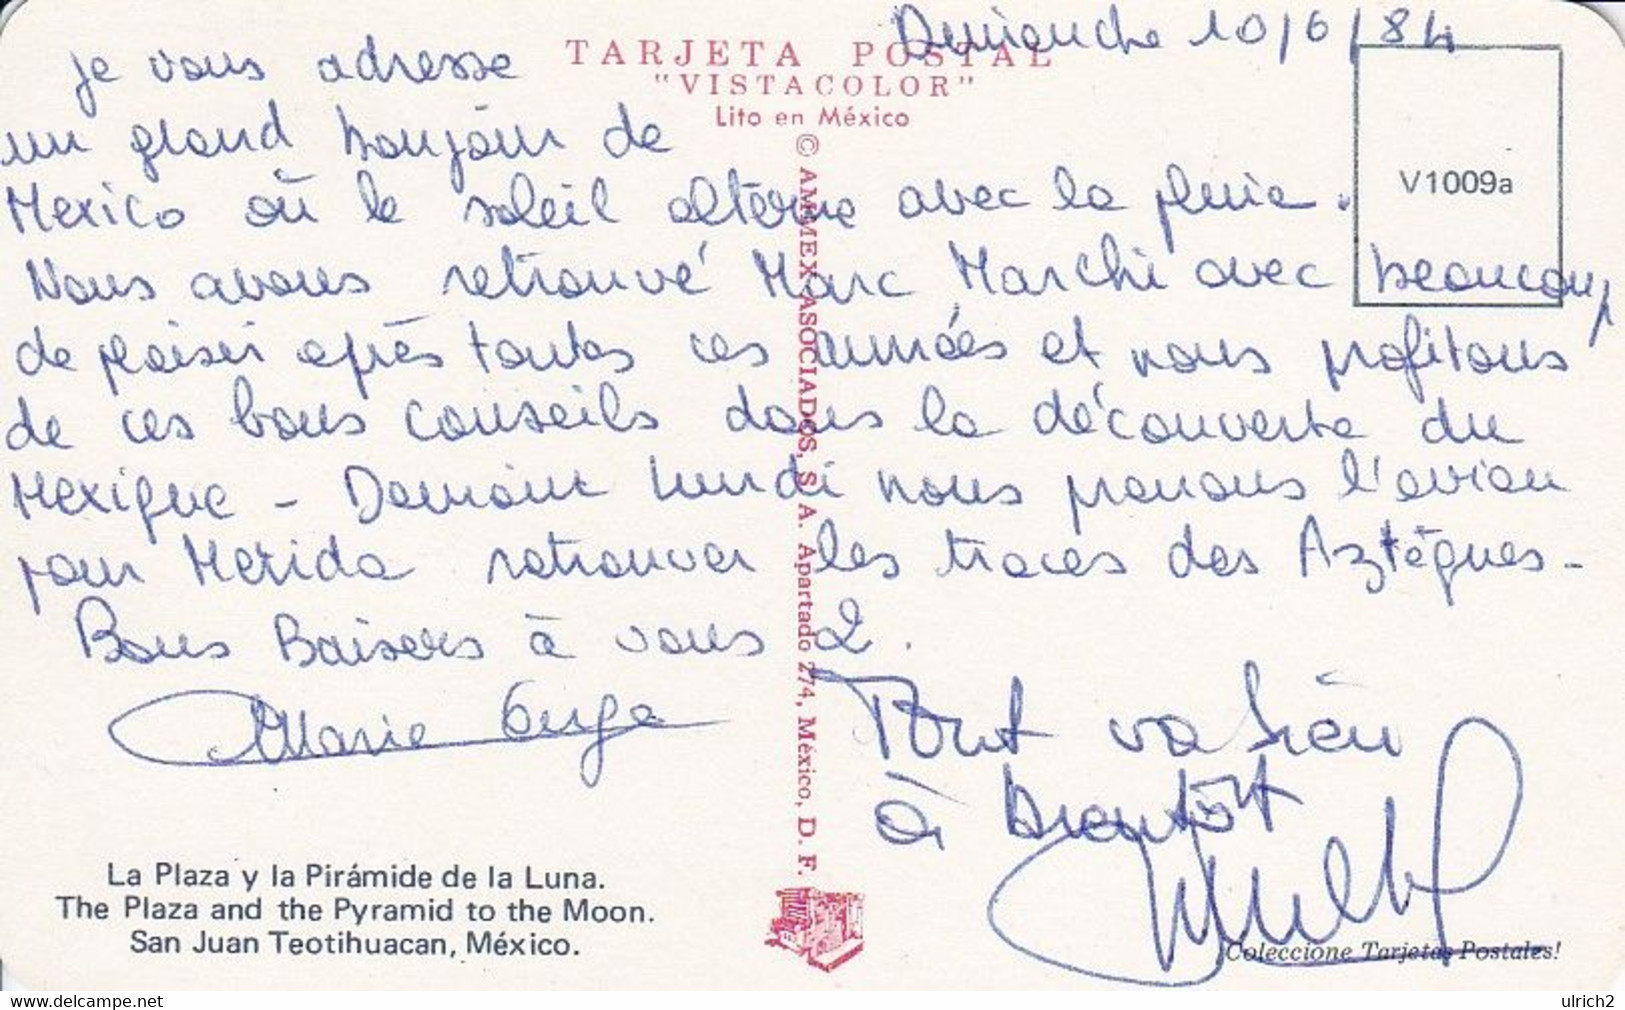 Dimanche 10/6/84
TARJETA POSTAL
"VISTACOLOR"
Lito en México
je vous adresse
un grand bonjour de
Mexico où le soleil alterne avec la pluie.
V1009a
Nous avons retrouvé Marc Marchi avec beaucoup
de plaisir après toutes ces années et nous profitons
de ces bons conseils dans la découverte du
Mexique - Demain lundi nous prenons l'avion
pour Merida retrouver les traces des Aztègues -
Bons Baisers à vous 2.
Marie
Tout va bien
à bientôt
© AMMEX ASOCIADOS, S. A. Apartado 274, México, D. F.
La Plaza y la Pirámide de la Luna.
The Plaza and the Pyramid to the Moon.
San Juan Teotihuacan, México.
Coleccione Tarjetas Postales!
delcampe.net
ulrich2